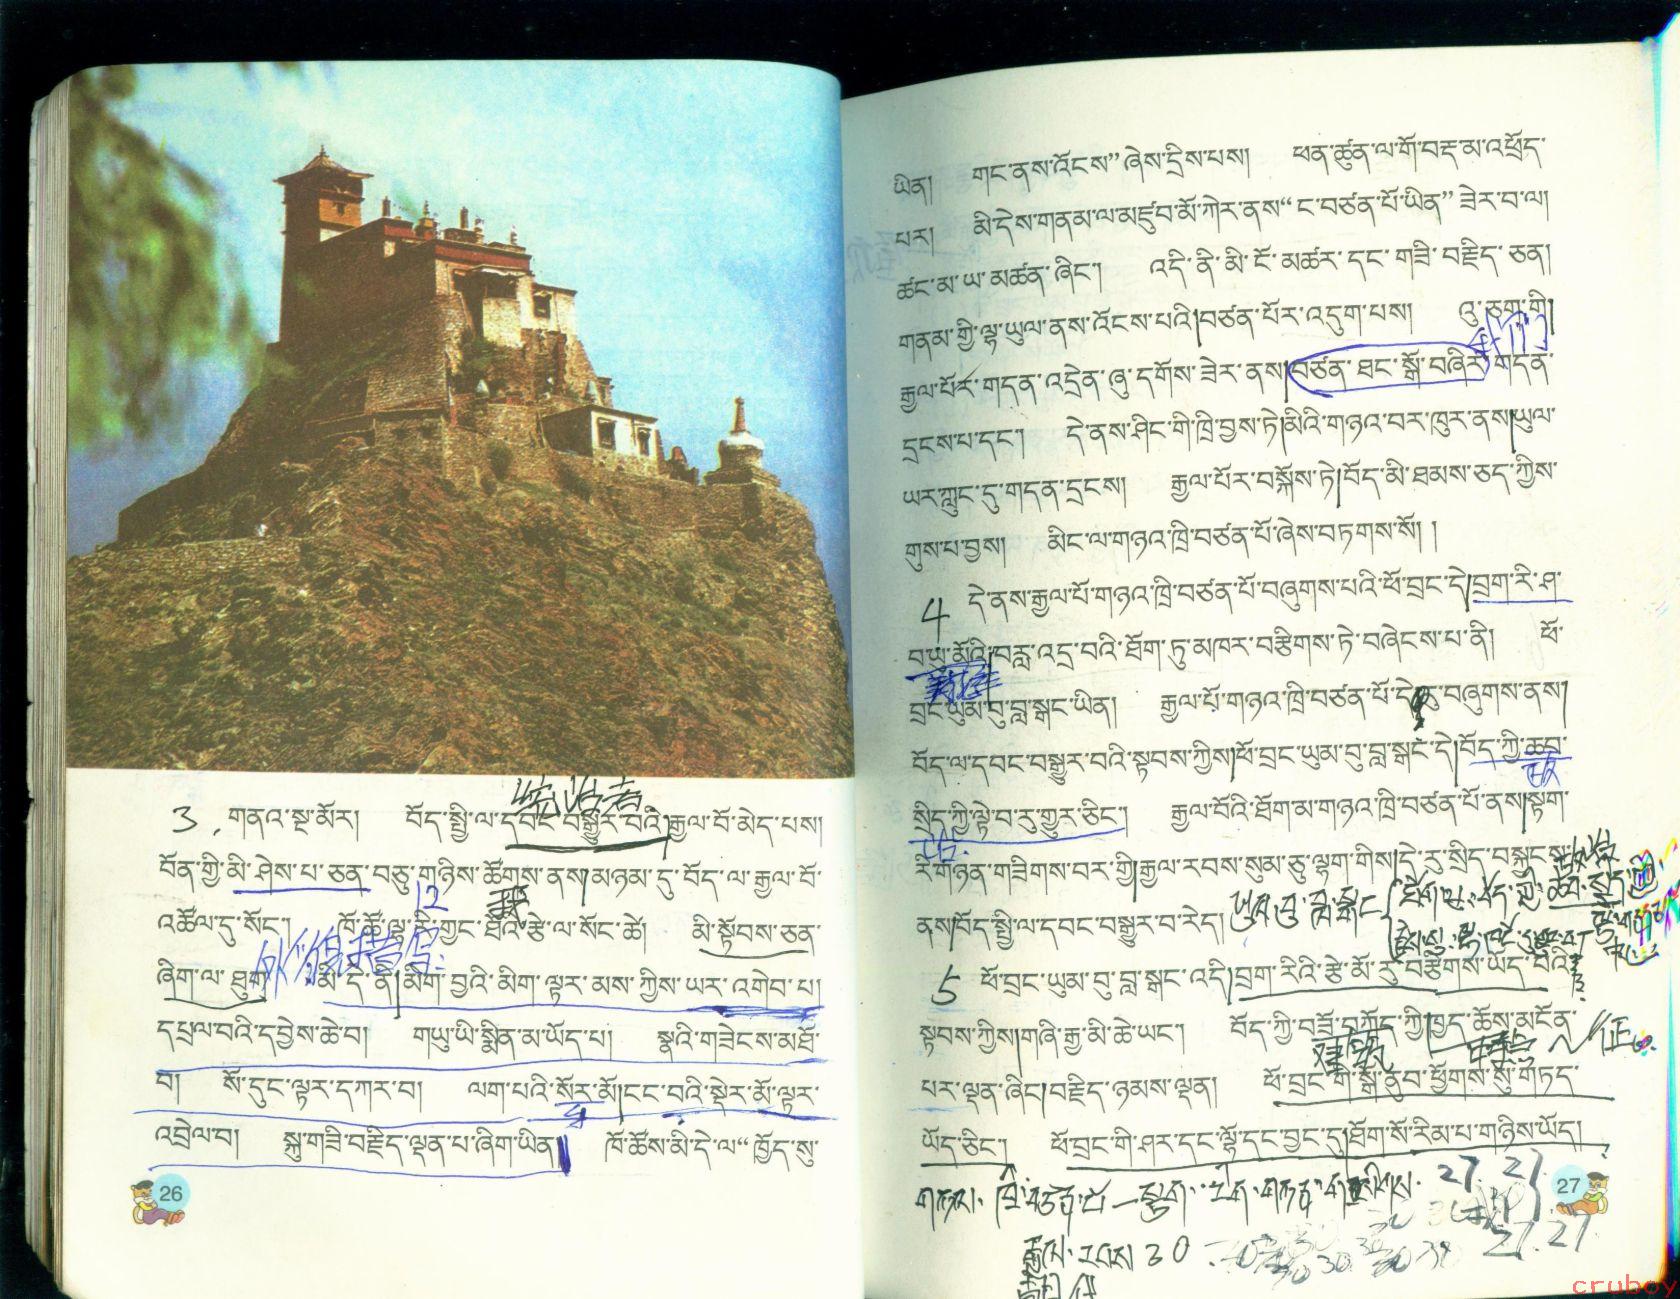 3. གནའ་སྔ་མོར། བོད་སྤྱི་ལ་དབང་བསྒྱུར་བའི་རྒྱལ་པོ་མེད་པས།
བོན་གྱི་མི་ཤེས་པ་ཅན་བཅུ་གཉིས་ཚོགས་ནས།མཉམ་དུ་བོད་ལ་རྒྱལ་པོ་
12
འཚོལ་དུ་སོང་། ཁོ་ཚོ་ལྷ་རི་གྱང་ཐོའི་རྩེ་ལ་སོང་ཚེ། མི་སྟོབས་ཅན་
ཞིག་ལ་ཐུག མི་དེ་ནི།མིག་བྱའི་མིག་ལྟར་མས་ཀྱིས་ཡར་འགེབ་པ།
དཔྲལ་བའི་དབྱེས་ཆེ་བ། གཡུ་ཡི་སྨིན་མ་ཡོད་པ། སྣའི་གཟེངས་མཐོ་
བ། སོ་དུང་ལྟར་དཀར་བ། ལག་པའི་སོར་མོ།ངང་བའི་སྡེར་མོ་ལྟར་
འབྲེལ་བ། སྐུ་གཟི་བརྗིད་ལྡན་པ་ཞིག་ཡིན། ཁོ་ཚོས་མི་དེ་ལ“ཁྱོད་སུ་
26
ཡིན། གང་ནས་འོངས”ཞེས་དྲིས་པས། ཕན་ཚུན་ལ་གོ་བརྡ་མ་འཕྲོད་
པར། མི་དེས་གནམ་ལ་མཛུབ་མོ་ཀེར་ནས“ང་བཙན་པོ་ཡིན”ཟེར་བ་ལ།
ཚང་མ་ཡ་མཚན་ཞིང་། འདི་ནི་མི་ངོ་མཚར་དང་གཟི་བརྗིད་ཅན།
གནམ་གྱི་ལྷ་ཡུལ་ནས་འོངས་པའི།བཙན་པོར་འདུག་པས། འུ་ཅག་གི།
རྒྱལ་པོར་གདན་འདྲེན་ཞུ་དགོས་ཟེར་ནས།བཙན་ཐང་སྒོ་བཞིར་གདན་
དྲངས་པ་དང་། དེ་ནས་ཤིང་གི་ཁྲི་བྱས་ཏེ།མིའི་གཉའ་བར་ཁུར་ནས།ཡུལ་
ཡར་ཀླུང་དུ་གདན་དྲངས། རྒྱལ་པོར་བསྐོས་ཏེ།བོད་མི་ཐམས་ཅད་ཀྱིས་
གུས་པ་བྱས། མིང་ལ་གཉའ་ཁྲི་བཙན་པོ་ཞེས་བཏགས་སོ། །
4 དེ་ནས་རྒྱལ་པོ་གཉའ་ཁྲི་བཙན་པོ་བཞུགས་པའི་ཕོ་བྲང་དེ།བྲག་རི་ཤ་
བ་ཡུ་མོའི།བརླ་འདྲ་བའི་ཐོག་ཏུ་མཁར་བརྩིགས་ཏེ་བཞེངས་པ་ནི། ཕོ་
བྲང་ཡུམ་བུ་བླ་སྒང་ཡིན། རྒྱལ་པོ་གཉའ་ཁྲི་བཙན་པོ་དེ་རུ་བཞུགས་ནས།
བོད་ལ་དབང་བསྒྱུར་བའི་སྟབས་ཀྱིས།ཕོ་བྲང་ཡུམ་བུ་བླ་སྒང་དེ།བོད་ཀྱི་ཆབ་
སྲིད་ཀྱི་ལྟེ་བ་རུ་གྱུར་ཅིང་། རྒྱལ་བོའི་ཐོག་མ་གཉའ་ཁྲི་བཙན་པོ་ནས།སྟག་
རི་གཉན་གཟིགས་བར་གྱི།རྒྱལ་རབས་སུམ་ཅུ་ལྷག་གིས།དེ་རུ་སྲིད་བསྐྱངས་
ནས།བོད་སྤྱི་ལ་དབང་བསྒྱུར་བ་རེད།
5 ཕོ་བྲང་ཡུམ་བུ་བླ་སྒང་འདི།བྲག་རིའི་རྩེ་མོ་རུ་བརྩིགས་ཡོད་པའི་
སྟབས་ཀྱིས།གཞི་རྒྱ་མི་ཆེ་ཡང་། བོད་ཀྱི་བཟོ་བཀོད་ཀྱི།ཁྱད་ཆོས་མངོན་
པར་ལྡན་ཞིང་།བརྗིད་ཉམས་ལྡན། ཕོ་བྲང་གི་སྒོ་ནུབ་ཕྱོགས་སུ་གཏད་
ཡོད་ཅིང་། ཕོ་བྲང་གི་ཤར་དང་ལྷོ་དང་བྱང་དུ།ཐོག་སོ་རིམ་པ་གཉིས་ཡོད།
27. 27.
27
རྒྱལ་རབས 30
27.27
cruboy